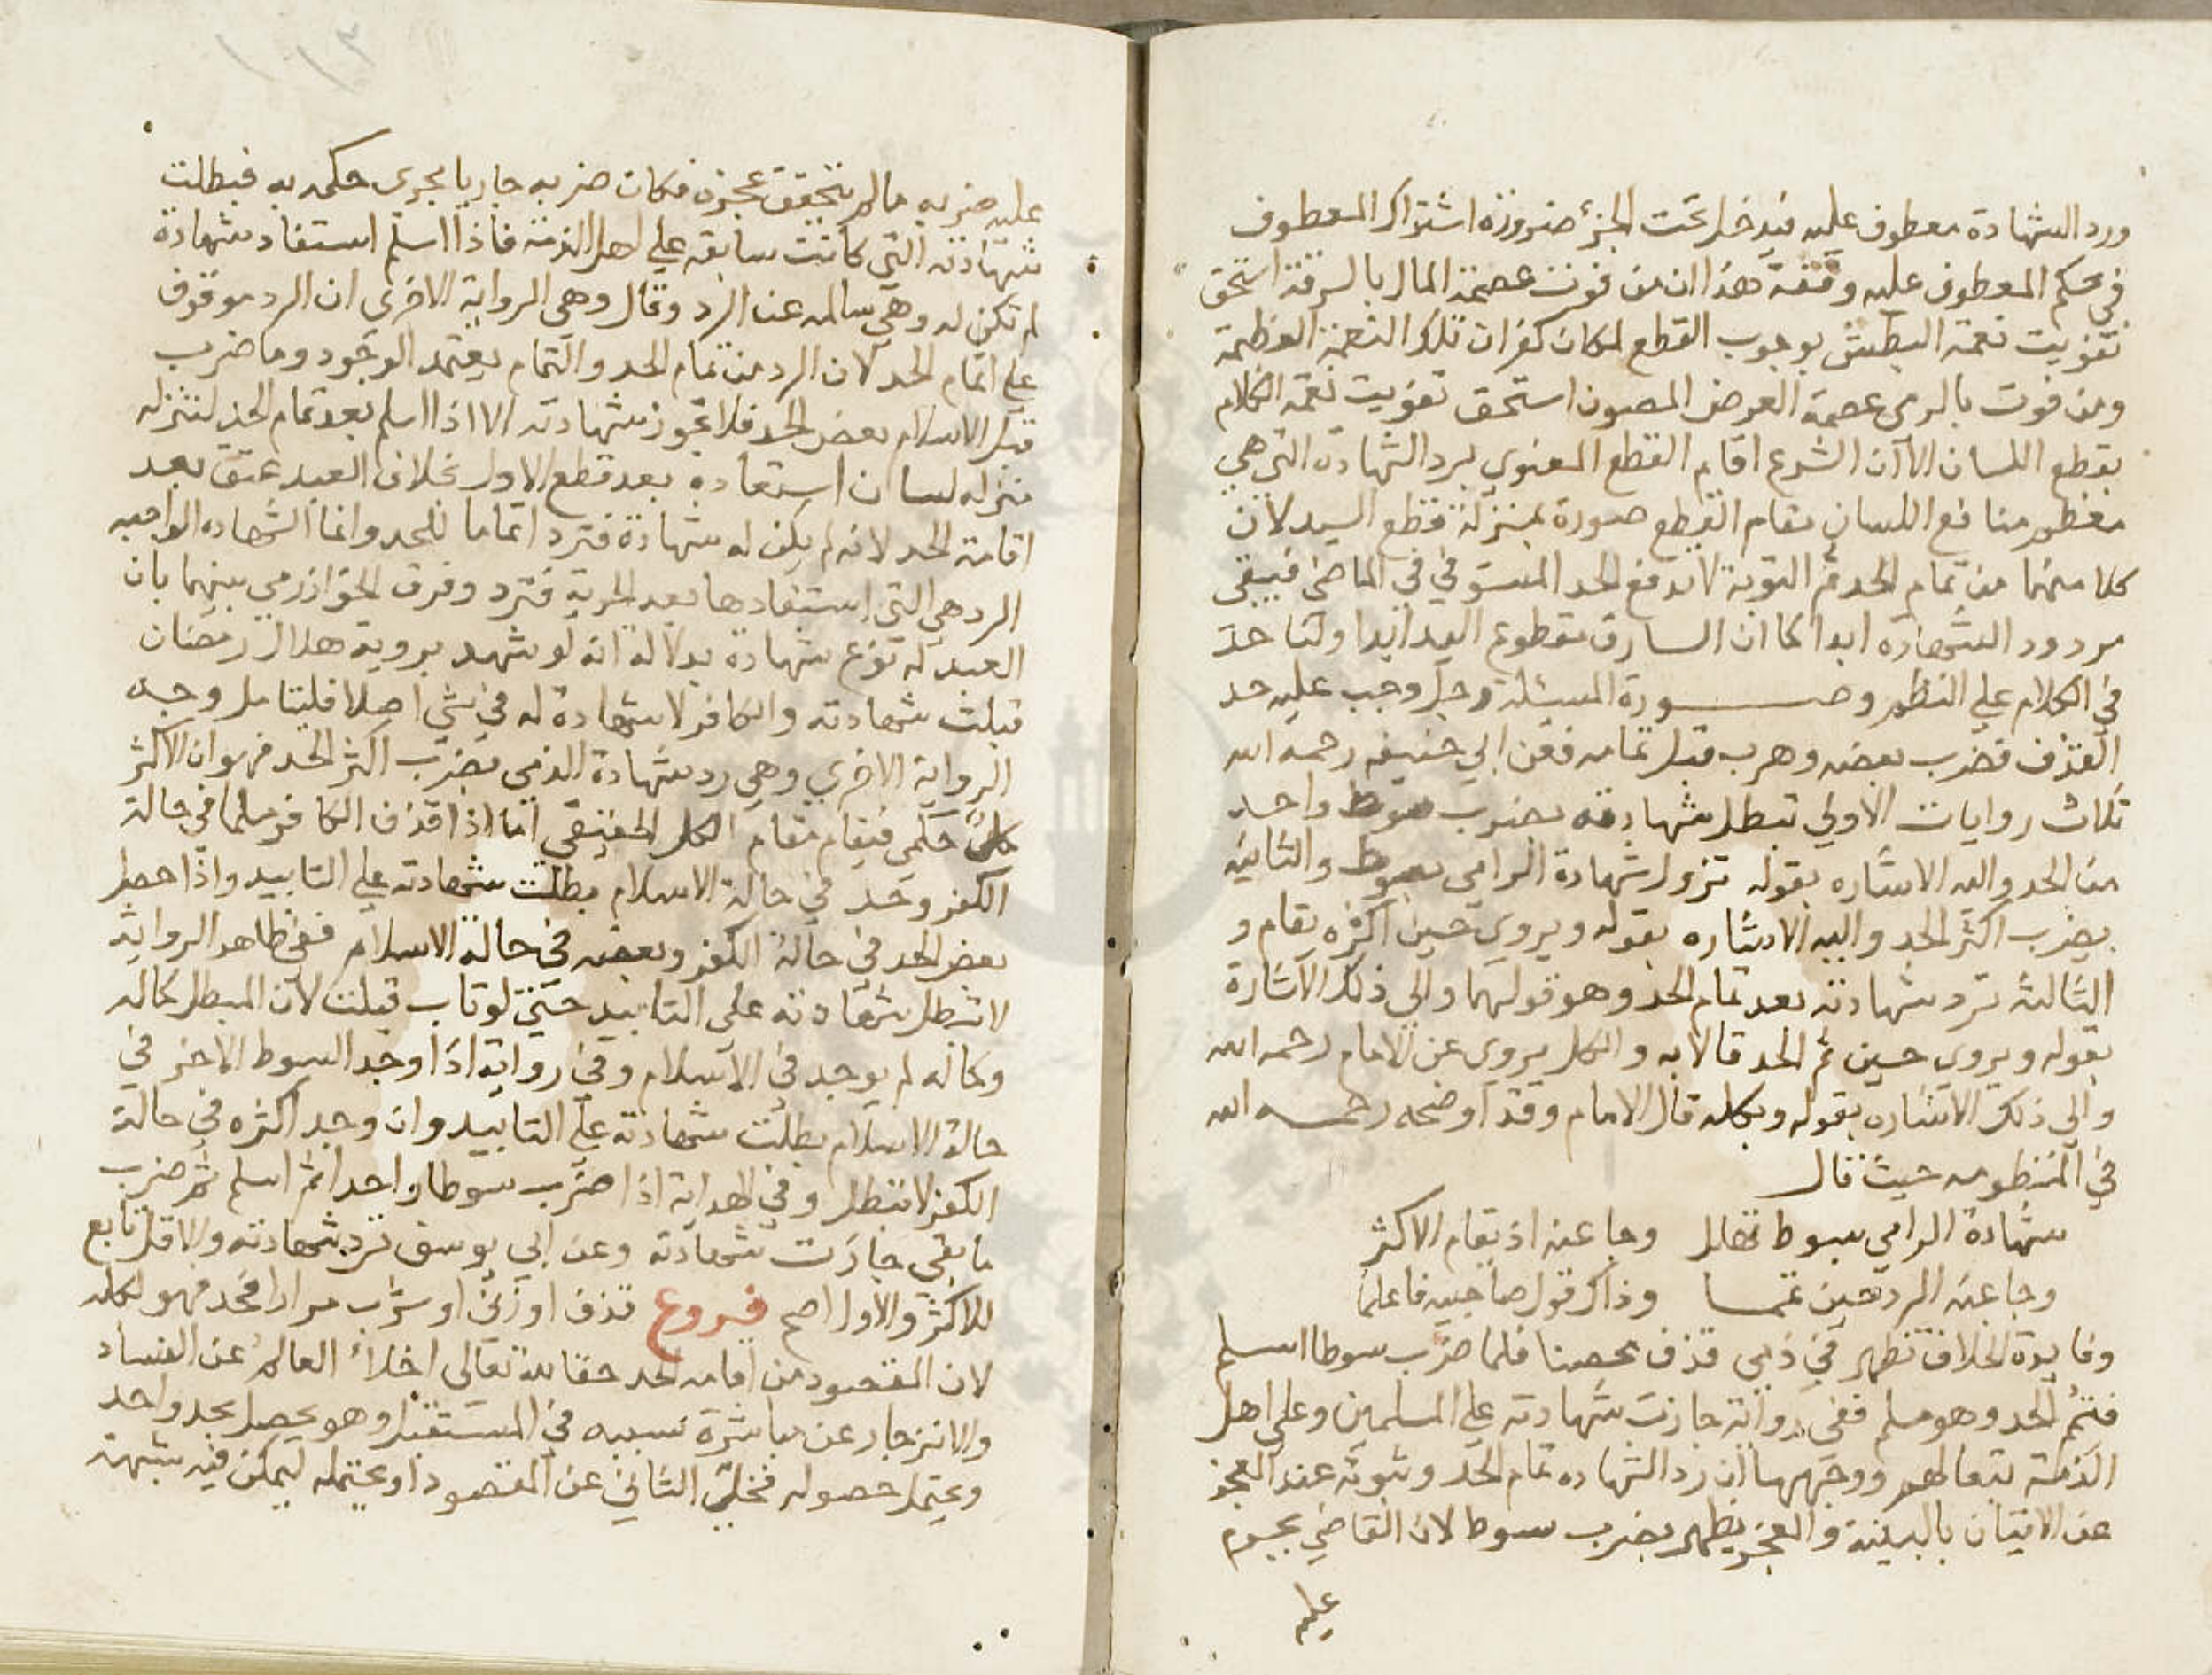 ورد الشهادة معطوف عليه فيدخل تحت الجزء ضرورة اشتراك المعطوف
في حكم المعطوف عليه وفقه هذا ان من فوت عصمة المال بالسرقة استحق
تفويت نعمة البطش بوجوب القطع لمكان كفران تلك النعمة العظيمة
ومن فوت بالرمي عصمة العرض المصون استحق تفويت نعمة الكلام
بقطع اللسان الا ان الشرع اقام القطع المعنوي برد الشهادة التي هي
معظم منافع اللسان مقام القطع صورة بمنزلة قطع اليد لان
كلا منهما من تمام الحد ثم التوبة لا تدفع الحد المستوفي في الماضي فيبقى
مردود الشهادة ابدا كما ان السارق مقطوع اليد ابدا ولنا حد
في الكلام على النظم وصورة المسئلة رجل وجب عليه حد
القذف فضرب بعضه وهرب قبل تمامه فعن ابي حنيفه رحمه الله
ثلاث روايات الاولي تبطل شهادته بضرب سوط واحد
من الحد واليه الاشاره بقوله تزول شهادة الرامي بسوط والثانيه
بضرب اكثر الحد واليه الاشاره بقوله ويروي حين اكثره يقام و
الثالثة ترد شهادته بعد تمام الحد وهو قولهما والى ذلك الاشارة
بقوله ويروي حين تم الحد قالا به والكل يروي عن الامام رحمه الله
والى ذلك الاشاره بقوله وبكله قال الامام وقد اوضحه رحمه الله
في المنظومه حيث قال
شهادة الرامي بسوط تهدر وجا عنه اذ يقام الاكثر
وجا عنه الرد حين تمما وذاك قول صاحبيه فاعلما
وفايدة الخلاف تظهر في ذمي قذف محصنا فلما ضرب سوطا اسلم
فتم الحد وهو مسلم ففي رواية جازت شهادته على المسلمين وعلى اهل
الذمة تبعا لهم ووجهها ان رد الشهاده تمام الحد وثبوته عند العجز
عن الاتيان بالبينة والعجز يظهر بضرب سوط لان القاضي يحرم
عليه
عليه ضربه مالم يتحقق عجزه فكان ضربه جاريا مجرى حكمه به فبطلت
شهادته التي كانت سابقه علي اهل الذمة فاذا اسلم استفاد شهادة
لم تكن له وهي سالمه عن الرد وقال وهي الرواية الاخرى ان الرد موقوف
على اتمام الحد لان الرد من تمام الحد والتمام يعتمد الوجود وما ضرب
قبل الاسلام بعض الحد فلا تجوز شهادته الا اذا اسلم بعد تمام الحد لتنزله
منزلة لسان استفاده بعد قطع الاول بخلاف العبد عتق بعد
اقامة الحد لانه لم يكن له شهادة فترد اتماما للحد وانما الشهاده الواجبه
الرد هي التي استفادها بعد الحرية فترد وفرق الخوارزمي بينهما بان
العبد له نوع شهادة بدلالة انه لو شهد بروية هلال رمضان
قبلت شهادته والكافر لا شهادة له في شي اصلا فليتامل وجه
الرواية الاخري وهي رد شهادة الذمي بضرب اكثر الحد فهو ان الاكثر
كل حكمي فيقام مقام الكل الحقيقي اما اذا قذف الكافر مسلما في حالة
الكفر وحد في حالة الاسلام بطلت شهادته على التابيد واذا حصل
بعض الحد في حالة الكفر وبعضه في حالة الاسلام ففي ظاهر الرواية
لا تبطل شهادته على التابيد حتى لو تاب قبلت لان المبطل كماله
وكماله لم يوجد في الاسلام وفي رواية اذا وجد السوط الاخر في
حالة الاسلام بطلت شهادته على التابيد وان وجد اكثره في حالة
الكفر لا تبطل وفي الهداية اذا ضرب سوطا واحدا ثم اسلم ثم ضرب
ما بقي جازت شهادته وعن ابي يوسف ترد شهادته والاقل تابع
للاكثر والاول اصح فروع قذف او زنى او شرب مرارا فحد فهو لكله
لان المقصود من اقامه الحد حقا لله تعالى اخلاء العالم عن الفساد
والانزجار عن مباشرة سببه في المستقبل وهو يحصل بحد واحد
ويحتمل حصوله فخلى الثاني عن المقصود او يحتمله ليمكن فيه شبهة